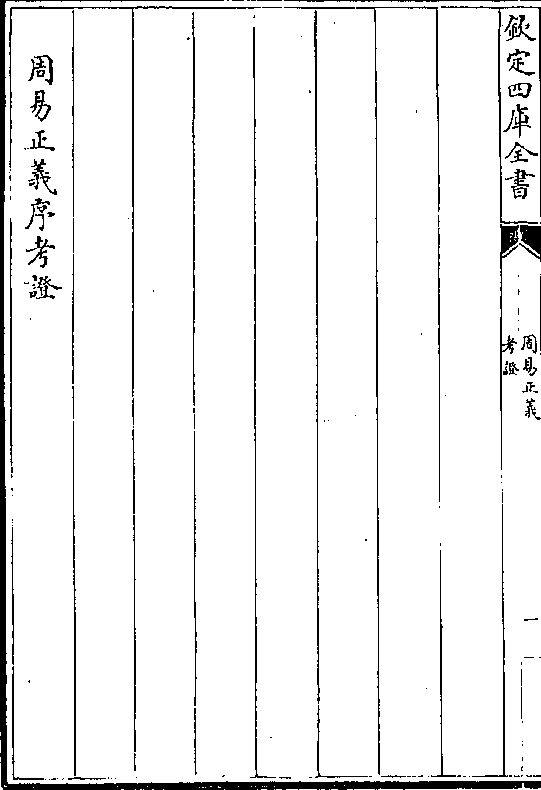 欽定四庫全書
周易正義
考證
一
周易正義序考證